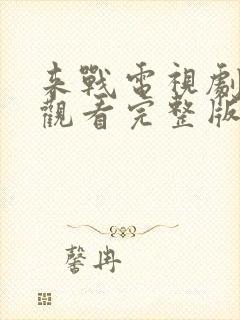 来戰電視劇
觀看完整版
馨冉